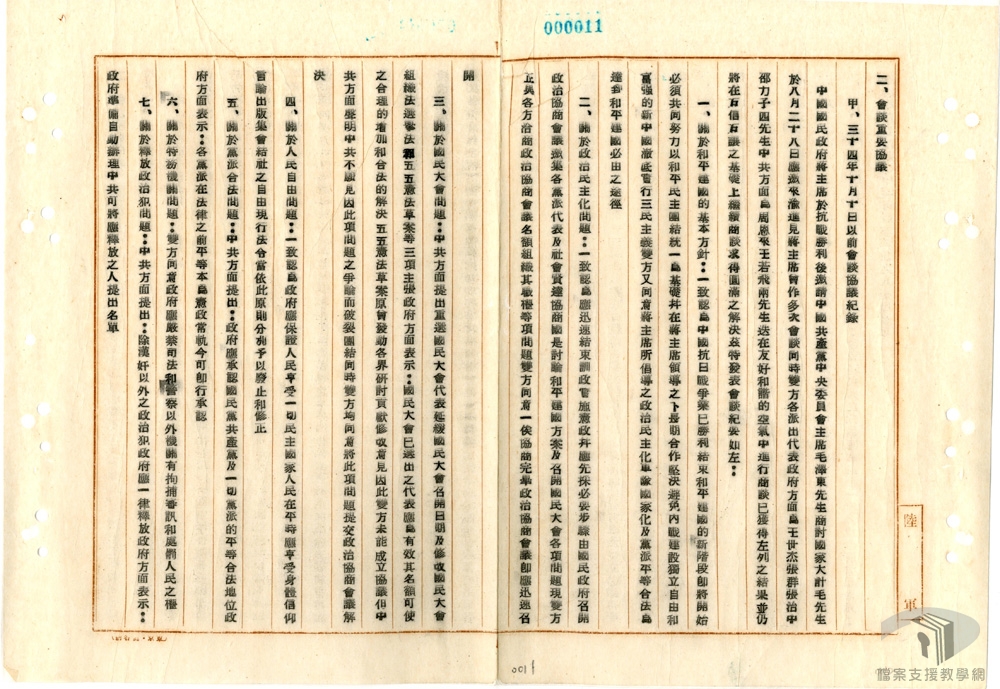 000011
二、會談重要協議
甲、三十四年十月十日以前會談協議紀錄
中國國民政府蔣主席於抗戰勝利後邀請中國共產黨中央委員會主席毛澤東先生商討國家大計毛先生
於八月二十八日應邀來渝進見蔣主席曾作多次會談同時雙方各派出代表政府方面為王世杰張群張治中
邵力子四先生中共方面為周恩來王若飛兩先生迭在友好和諧的空氣中進行商談已獲得左列之結果並仍
將在互信互讓之基礎上繼續商談求得圓滿之解決茲特發表會談紀要如左：
一、關於和平建國的基本方針：一致認為中國抗日戰爭業已勝利結束和平建國的新階段即將開始
必須共同努力以和平民主團結統一為基礎幷在蔣主席領導之下長期合作堅決避免內戰建設獨立自由和
富強的新中國澈底實行三民主義雙方又同意蔣主席所倡導之政治民主化軍隊國家化及黨派平等合法為
達到和平建國必由之途徑
二、關於政治民主化問題：一致認為應迅速結束訓政實施憲政幷應先採必要步驟由國民政府召開
政治協商會議邀集各黨派代表及社會賢達協商國是討論和平建國方案及召開國民大會各項問題現雙方
正與各方洽商政治協商會議名額組織其職權等項問題雙方同意一俟協商完畢政治協商會議即應迅速召
開
三、關於國民大會問題：中共方面提出重選國民大會代表延緩國民大會召開日期及修改國民大會
組織法選舉法和五五憲法草案等三項主張政府方面表示：國民大會已選出之代表應為有效其名額可使
之合理的增加和合法的解決五五憲法草案原曾發動各界研討貢獻修改意見因此雙方未能成立協議但中
共方面聲明中共不願見因此項問題之爭論而破裂團結同時雙方均同意將此項問題提交政治協商會議解
決
四、關於人民自由問題：一致認為政府應保證人民享受一切民主國家人民在平時應享受身體信仰
言論出版集會結社之自由現行法令當依此原則分別予以廢止和修正
五、關於黨派合法問題：中共方面提出：政府應承認國民黨共產黨及一切黨派的平等合法地位政
府方面表示：各黨派在法律之前平等本為憲政常軌今可即行承認
六、關於特務機關問題：雙方同意政府應嚴禁司法和警察以外機關有拘捕審訊和處罰人民之權
七、關於釋放政治犯問題：中共方面提出：除漢奸以外之政治犯政府應一律釋放政府方面表示：
政府準備自動辦理中共可將應釋放之人提出名單
陸
軍
0011
檔案支援教學網